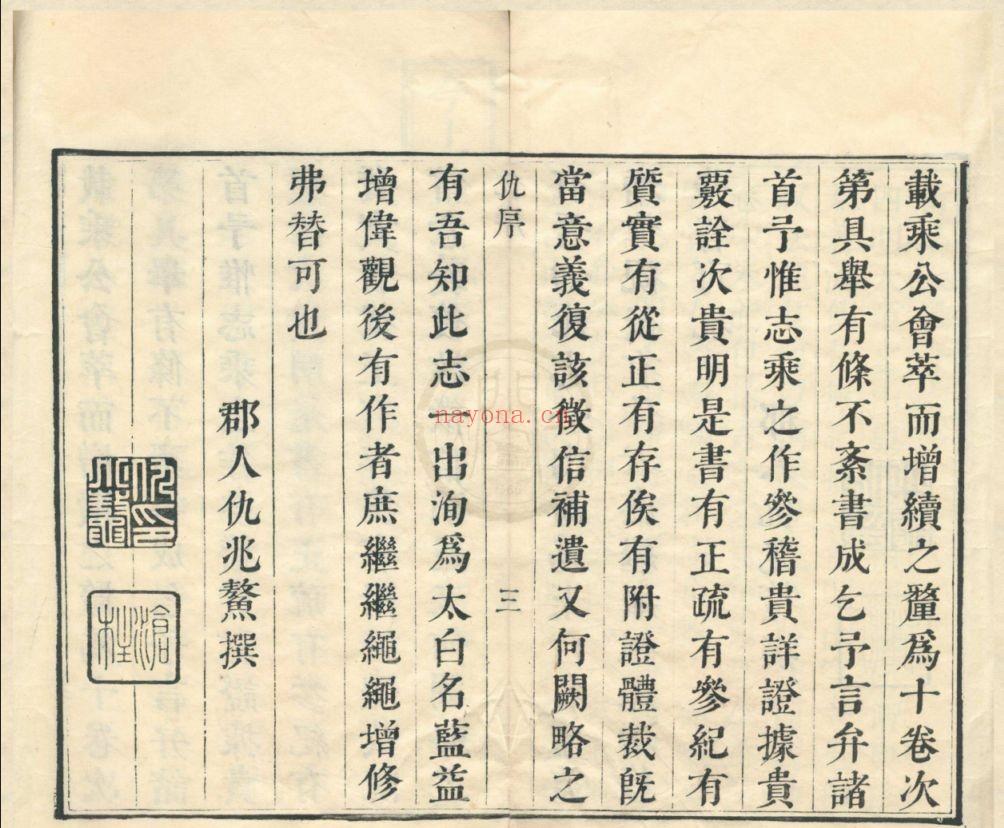 載乘公會萃而增續之釐爲十卷次
第具舉有條不紊書成乞予言弁諸
首予惟志乘之作參稽貴詳證據貴
覈詮次貴明是書有正疏有參紀有
質實有從正有存俟有附證體裁旣
當意義復該徵信補遺又何闕略之
仇序
三
有吾知此志一出洵爲太白名藍益
增偉觀後有作者庶繼繼繩繩增修
弗替可也
郡人仇兆鰲撰
仇兆鰲印
滄柱
nayona.cn